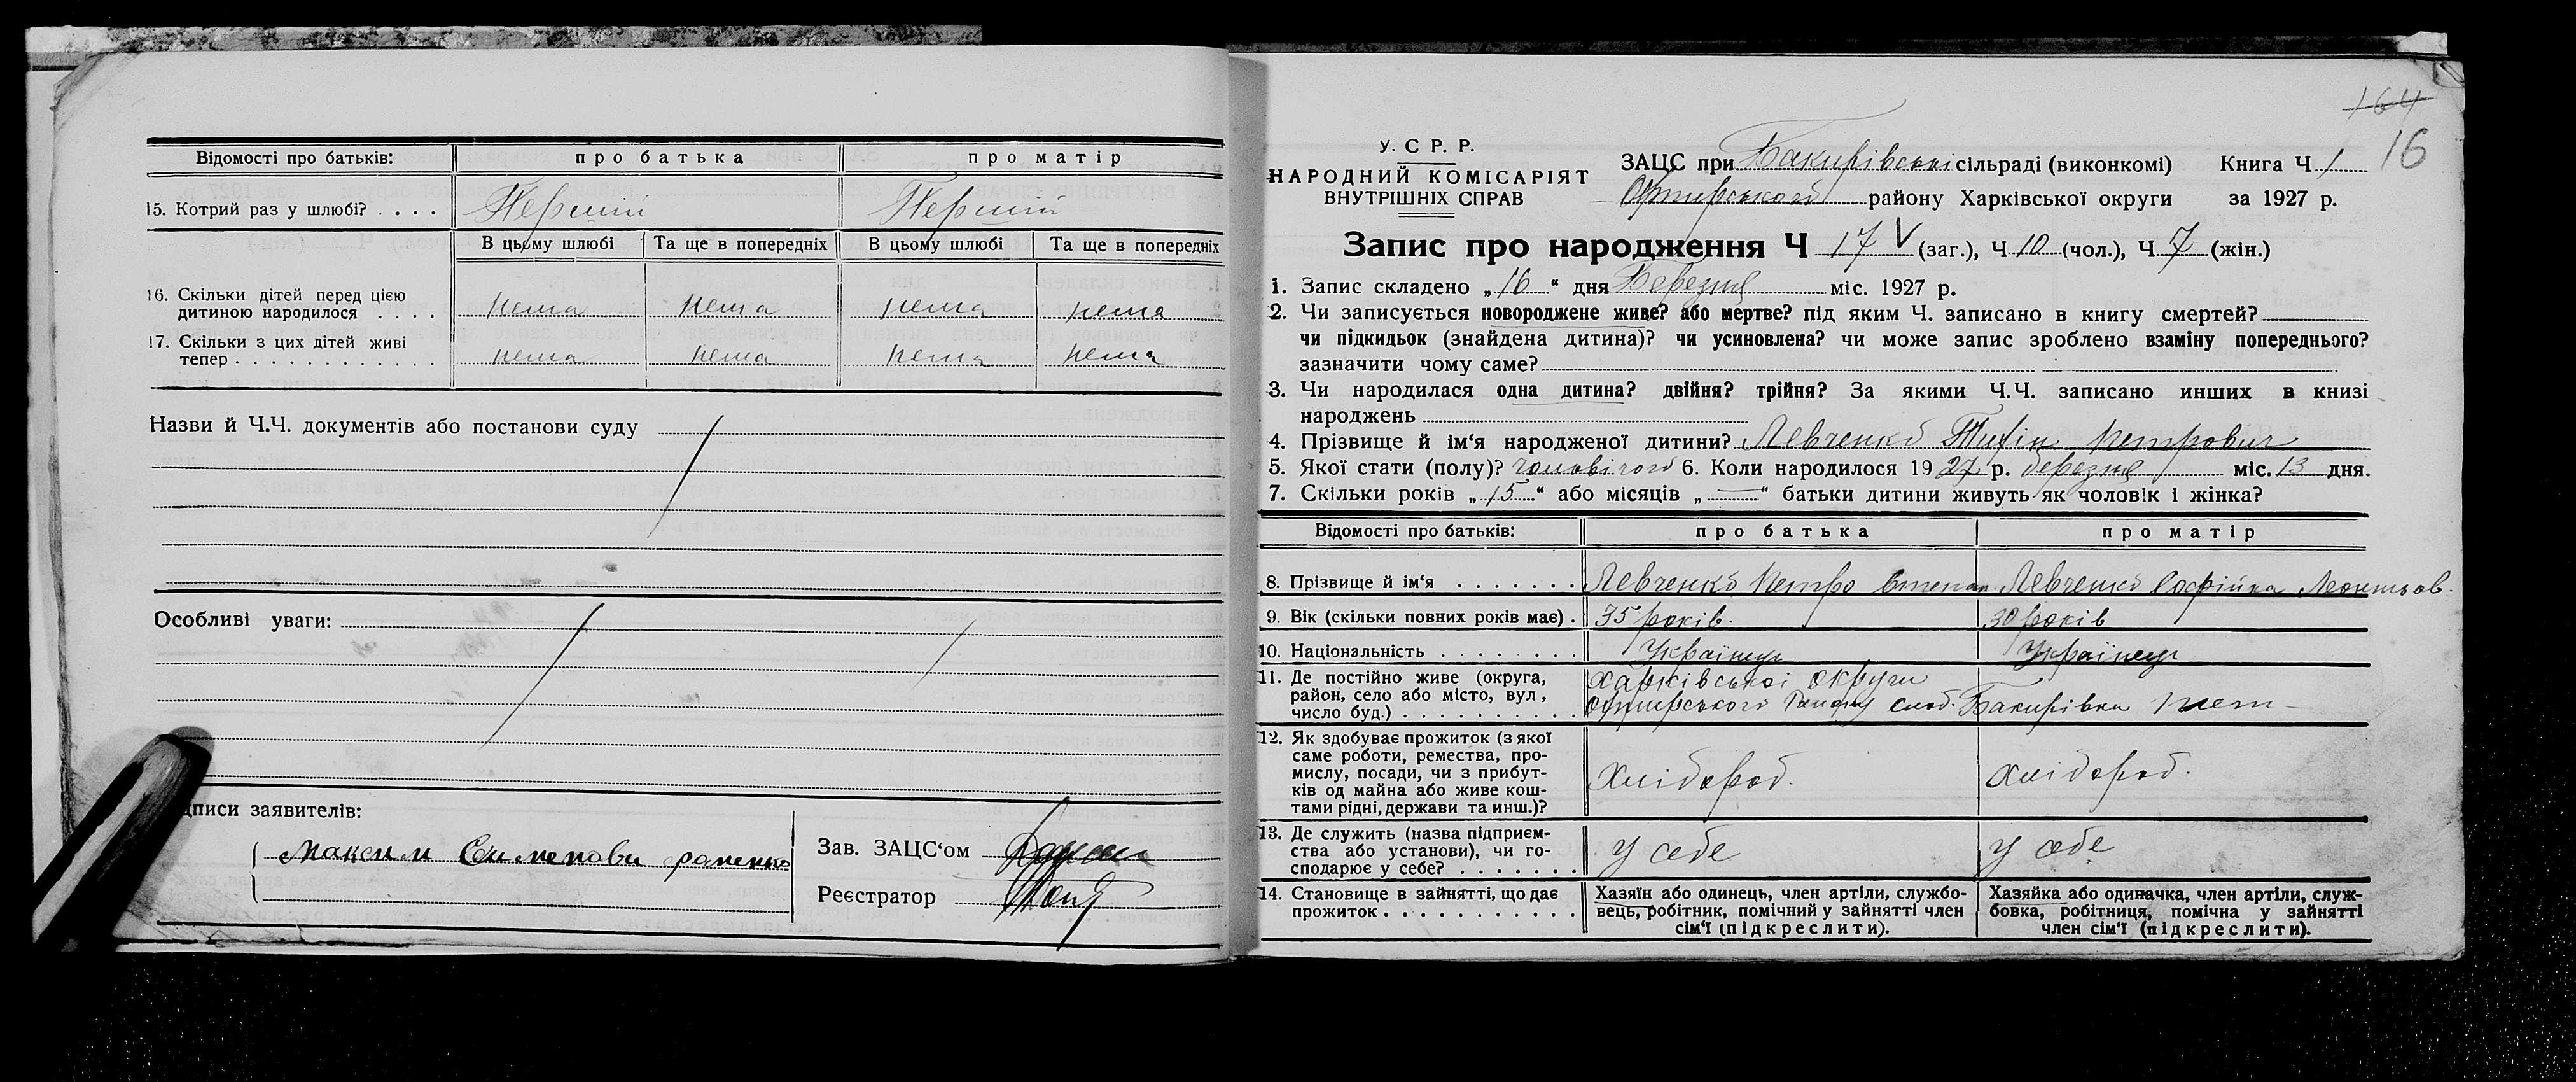 Відомості про батьків: про батька про матір
15. Котрий раз у шлюбі? . . . . Перший Перший
В цьому шлюбі Та ще в попередніх В цьому шлюбі Та ще в попередніх
16. Скільки дітей перед цією
дитиною народилося . . . . нема нема нема нема
17. Скільки з цих дітей живі
тепер . . . . . . . . . . . . нема нема нема нема
Назви й Ч.Ч. документів або постанови суду
Особливі уваги:
дписи заявителів:
Максим
Зав. ЗАЦС‘ом
Реєстратор
164
16
У. С Р. Р.
НАРОДНИЙ КОМІСАРІЯТ
ВНУТРІШНІХ СПРАВ
ЗАЦС при Бакирівській сільраді (виконкомі) Книга Ч 1
Охтирського району Харківської округи за 1927 р.
Запис про народження Ч 17 V (заг.), Ч 10 (чол.), Ч 7 (жін.)
1. Запис складено „16“ дня Березня міс. 1927 р.
2. Чи записується новороджене живе? або мертве? під яким Ч. записано в книгу смертей?
чи підкидьок (знайдена дитина)? чи усиновлена? чи може запис зроблено взаміну попереднього?
зазначити чому саме?
3. Чи народилася одна дитина? двійня? трійня? За якими Ч.Ч. записано инших в книзі
народжень
4. Прізвище й ім‘я народженої дитини? Левченко Петрович
5. Якої стати (полу)? чоловічого 6. Коли народилося 1927 р. березня міс. 13 дня.
7. Скільки років „15“ або місяців „—“ батьки дитини живуть як чоловік і жінка?
Відомості про батьків: про батька про матір
8. Прізвище й ім‘я . . . . . . . Левченко Петро Степан Левченко Софійка Леонтьов.
9. Вік (скільки повних років має) . 35 років. 30 років
10. Національність . . . . . . . . Українець Українець
11. Де постійно живе (округа, Харківської округи
район, село або місто, вул,
число буд.) . . . . . . . . . . Охтирського Району слоб. Бакирівка
12. Як здобуває прожиток (з якої
саме роботи, ремества, про-
мислу, посади, чи з прибут-
ків од майна або живе кош-
тами рідні, держави та инш.)?
Хлібороб. Хлібороб.
13. Де служить (назва підприєм-
ства або установи), чи го-
сподарює у себе? . . . . . . .
у себе у себе
14. Становище в зайнятті, що дає
прожиток . . . . . . . . . . .
Хазяїн або одинець, член артіли, службо-
вець, робітник, помічний у зайнятті член
сім‘ї (підкреслити).
Хазяйка або одиначка, член артіли, служ-
бовка, робітниця, помічна у зайнятті
член сім‘ї (підкреслити).